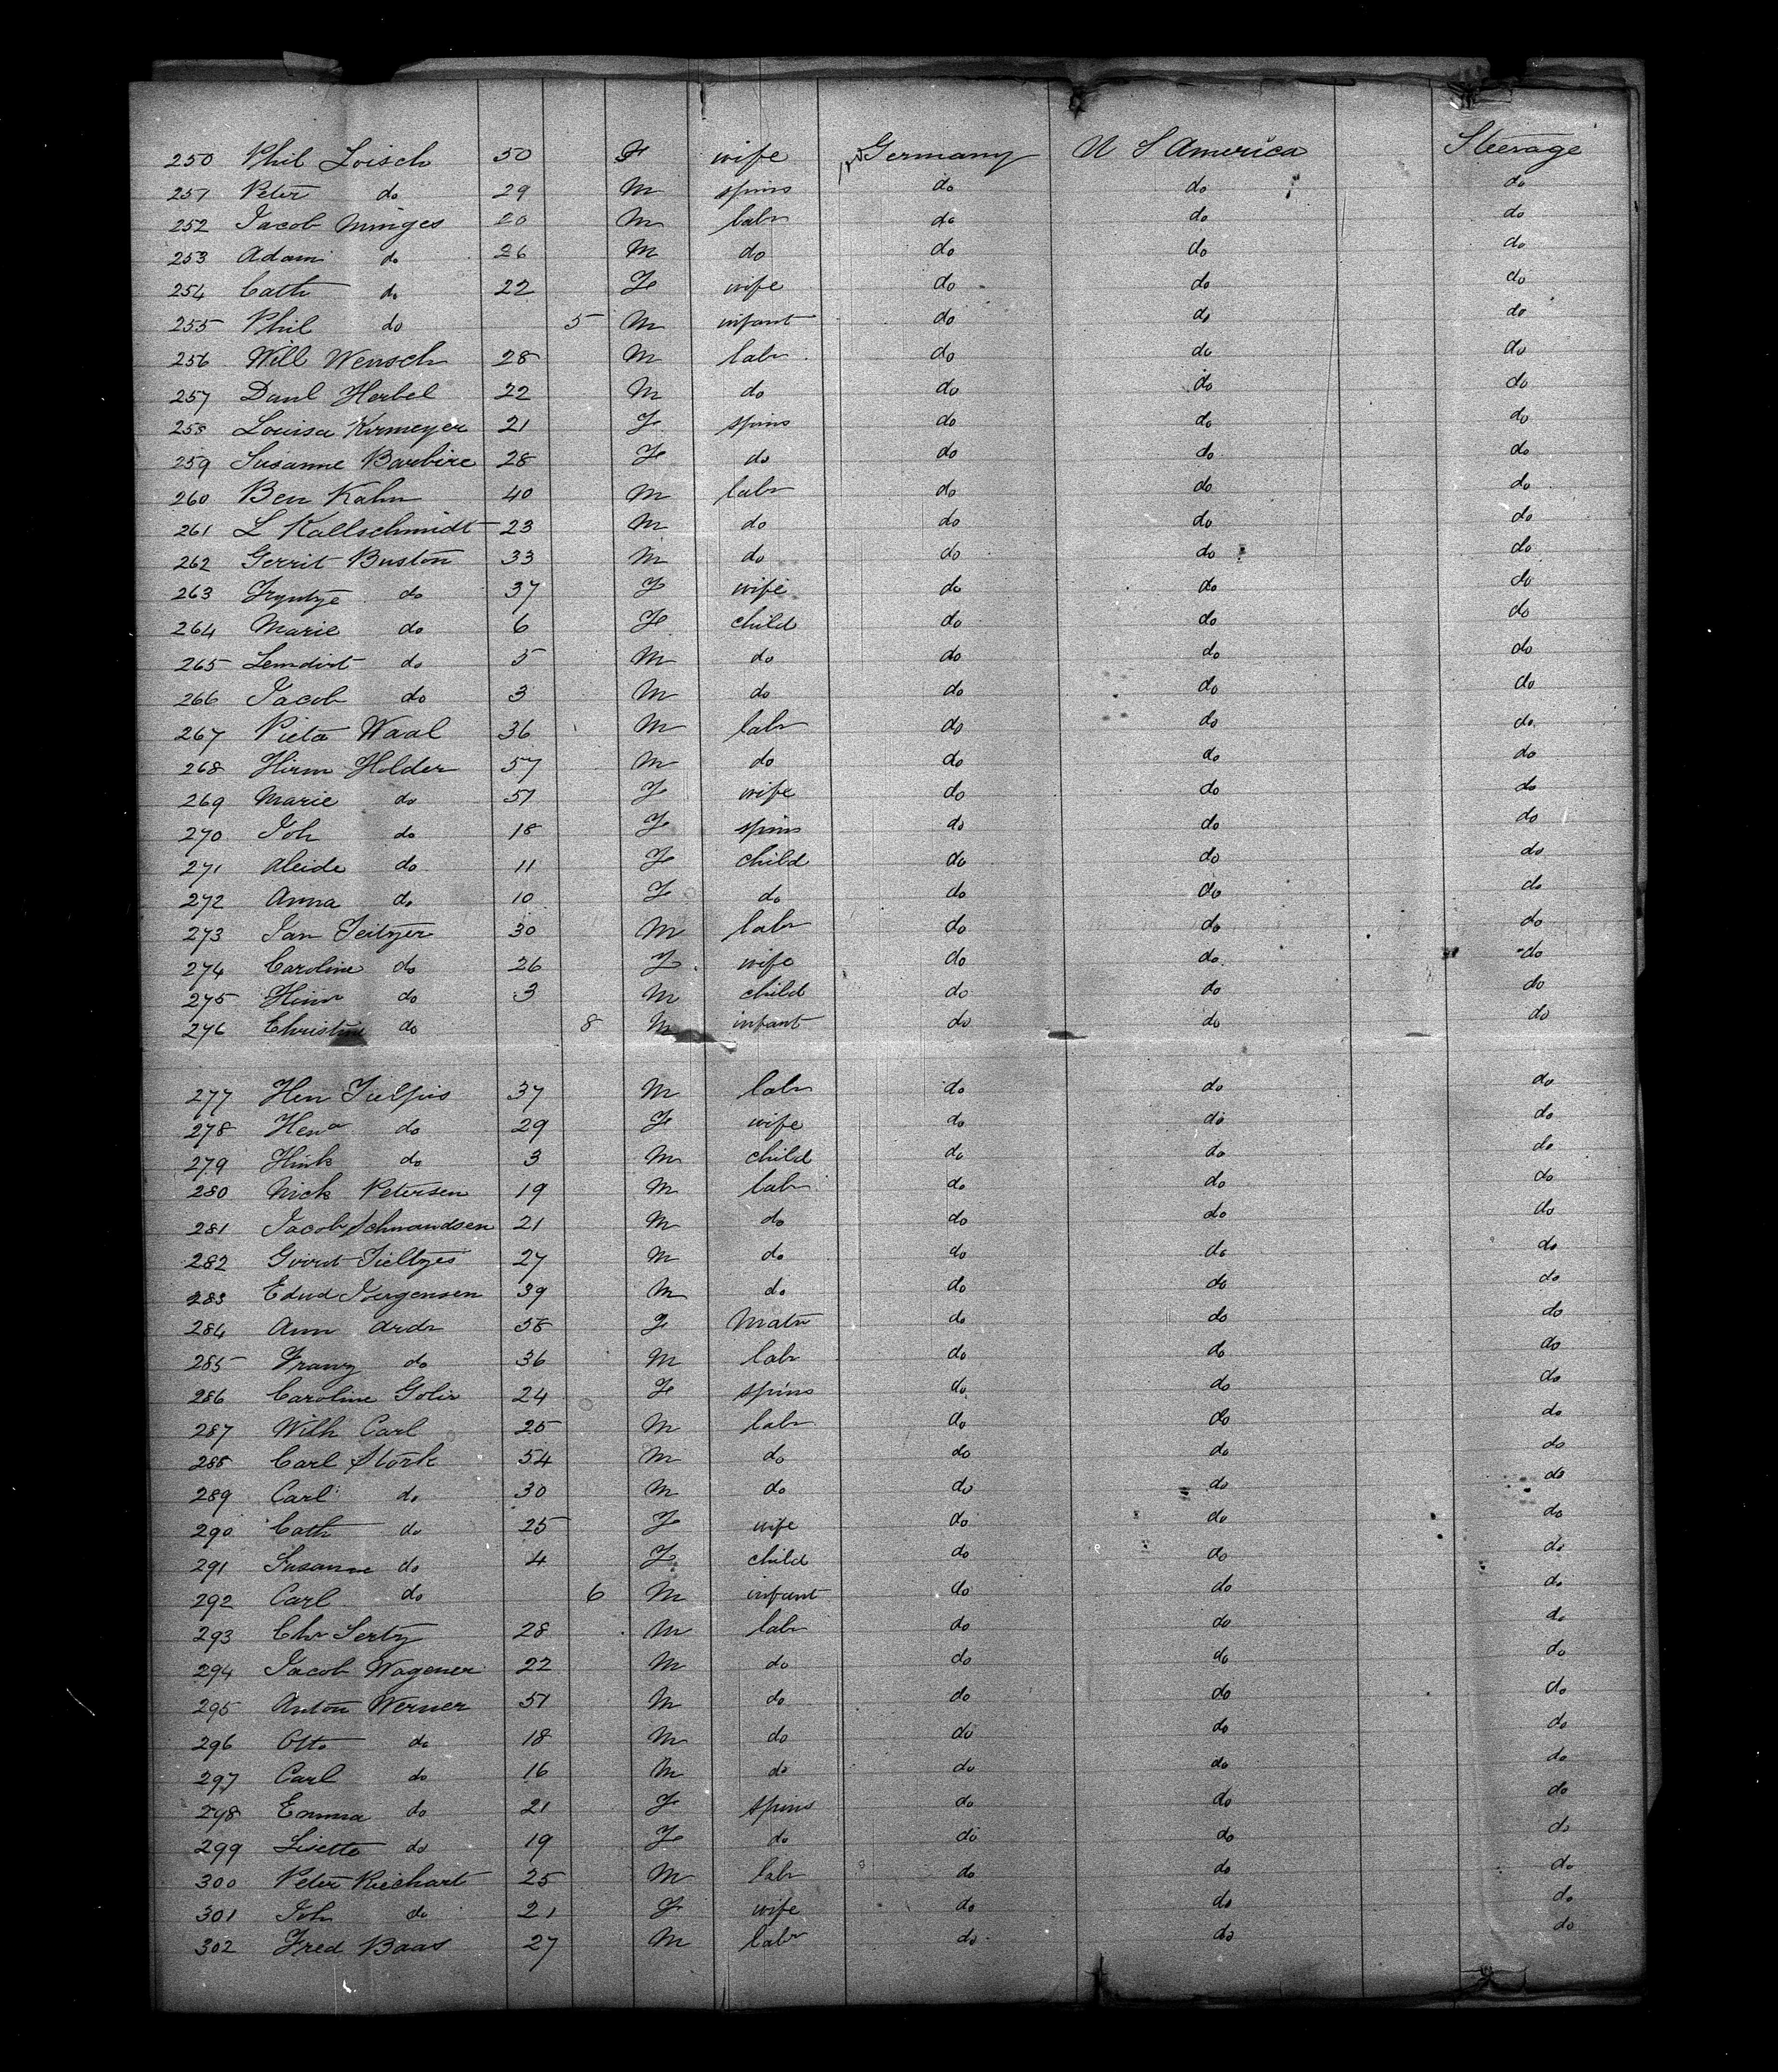 250 Phil Loisch 50 F wife Germany U S America Steerage
251 Peter do 29 M spins do do do
252 Jacob Minges 20 M labr do do do
253 Adam do 26 M do do do do
254 Cath do 22 F wife do do do
255 Phil do 5 M infant do do do
256 Will Wensch 28 M labr do do do
257 Danl Herbel 22 M do do do do
258 Louisa Kirmeyer 21 F spins do do do
259 Susanne Barbire 28 F do do do do
260 Ben Kahn 40 M labr do do do
261 L Kallschmidt 23 M do do do do
262 Gerrit Buston 33 M do do do do
263 Tryntje do 37 F wife do do do
264 Marie do 6 F child do do do
265 Lendirt do 5 M do do do do
266 Jacob do 3 M do do do do
267 Pieta Waal 36 M labr do do do
268 Hirm Holder 57 M do do do do
269 Marie do 51 F wife do do do
270 Joh do 18 F spins do do do
271 Aleide do 11 F child do do do
272 Anna do 10 F do do do do
273 Jan Teitzer 30 M labr do do do
274 Caroline do 26 F wife do do do
275 Hinr do 3 M child do do do
276 Christine do 8 M infant do do do
277 Hen 37 M labr do do do
278 Hena do 29 F wife do do do
279 Hink do 3 M child do do do
280 Nick Petersen 19 M labr do do do
281 Jacob Schwandsen 21 M do do do do
282 27 M do do do do
283 Edud Jergensen 39 M do do do do
284 Ann Ardr 58 F Matr do do do
285 Franz do 36 M labr do do do
286 Caroline Golir 24 F spins do do do
287 Wilh Carl 25 M labr do do do
288 Carl Stork 54 M do do do do
289 Carl do 30 M do do do do
290 Cath do 25 F wife do do do
291 Susanne do 4 F child do do do
292 Carl do 6 M infant do do do
293 Chr Sertz 28 M labr do do do
294 Jacob Wagener 22 M do do do do
295 Anton Werner 51 M do do do do
296 Otto do 18 M do do do do
297 Carl do 16 M do do do do
298 Emma do 21 F spins do do do
299 Lisette do 19 F do do do do
300 Peter Riechart 25 M labr do do do
301 Joh do 21 F wife do do do
302 Fred Baas 27 M labr do do do